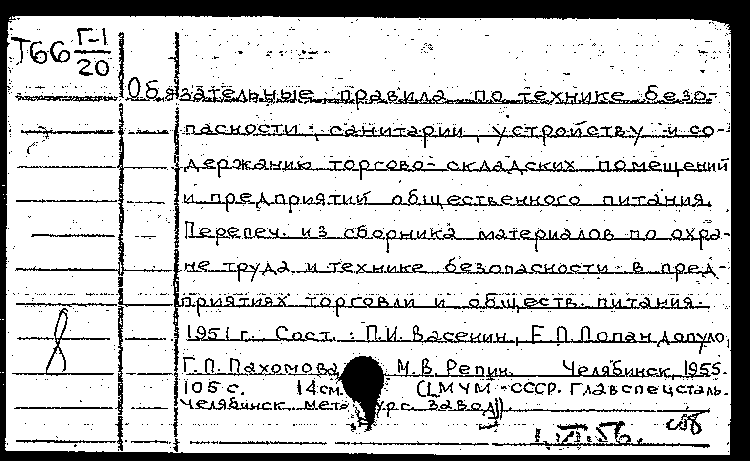 Т66 Г-1
20
Обязательные правила по технике безо-
пасности, санитарии, устройству и со-
держанию торгово-складских помещений
и предприятий общественного питания.
Перепеч. из сборника материалов по охра-
не труда и технике безопасности в пред-
приятиях торговли и обществ. питания.
1951 г. Сост.: П.И. Васенин, Е.П. Попандопуло,
8
Г.П. Пахомова, М.В. Репин. Челябинск, 1955.
105 с. 14 см. (МЧМ СССР. Главспецсталь.
Челябинск. мета ург. завод).
1.XI.56.